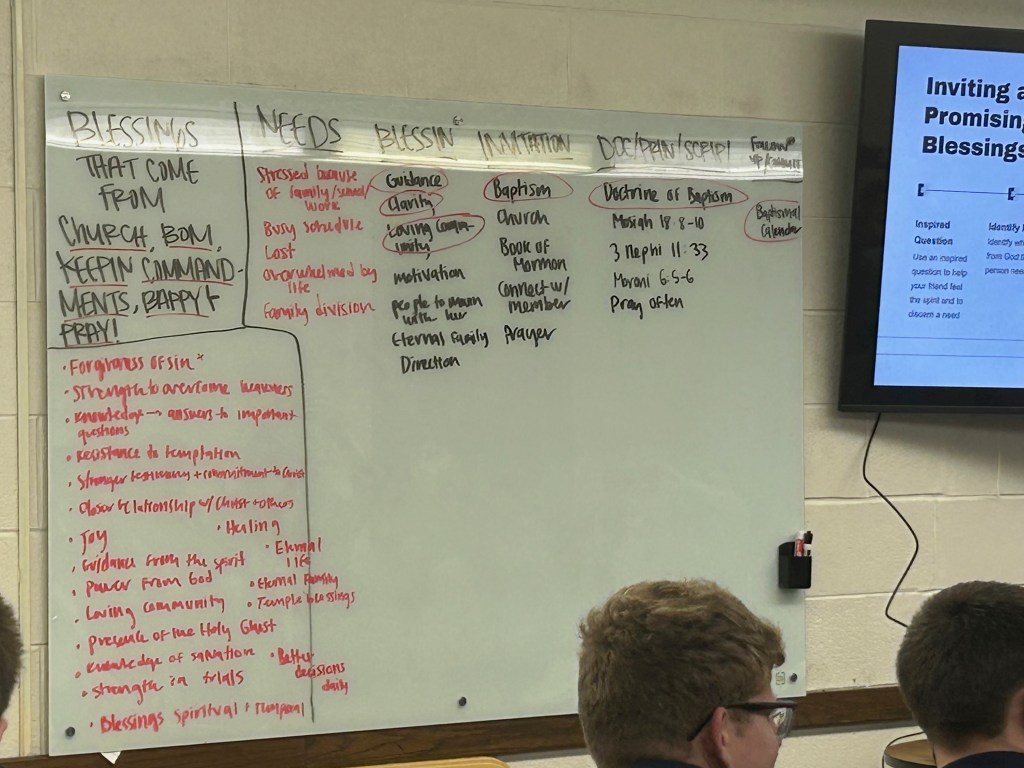 BLESSINGS
THAT COME
FROM
CHURCH, BOM,
KEEPIN COMMAND-
MENTS, BAPPY +
PRAY!
• Forgiveness of sin *
• Strength to overcome
• Knowledge → answers to important
questions
• Resistance to temptation
• Stronger testimony + commitment to Christ
• Closer relationship w/ Christ + others
• Joy
• Healing
• Guidance from the spirit
• Eternal
life
• Power From God
• Eternal Family
• Loving community
• Temple blessings
• presence of the Holy Ghost
• Knowledge of salvation
• Better
decisions
daily
• Strength in trials
• Blessings Spiritual + Temporal
NEEDS
Stressed because
of family/school/
work
Busy schedule
Lost
overwhelmed by
life
Family division
BLESSIN
Guidance
Clarity
Loving Comm-
unity
motivation
people to mourn
with her
Eternal Family
Direction
INVITATION
Baptism
Church
Book of
Mormon
Connect w/
member
Prayer
DOC/PRIN/SCRIPT
Doctrine of Baptism
Mosiah 18:8-10
3 Nephi 11:33
Moroni 6:5-6
Pray often
Follow
up/
Baptismal
Calendar
Inviting a
Promising
Blessings
Inspired
Question
Use an inspired
question to help
your friend feel
the spirit and to
discern a need
Identify
Identify
from God
person